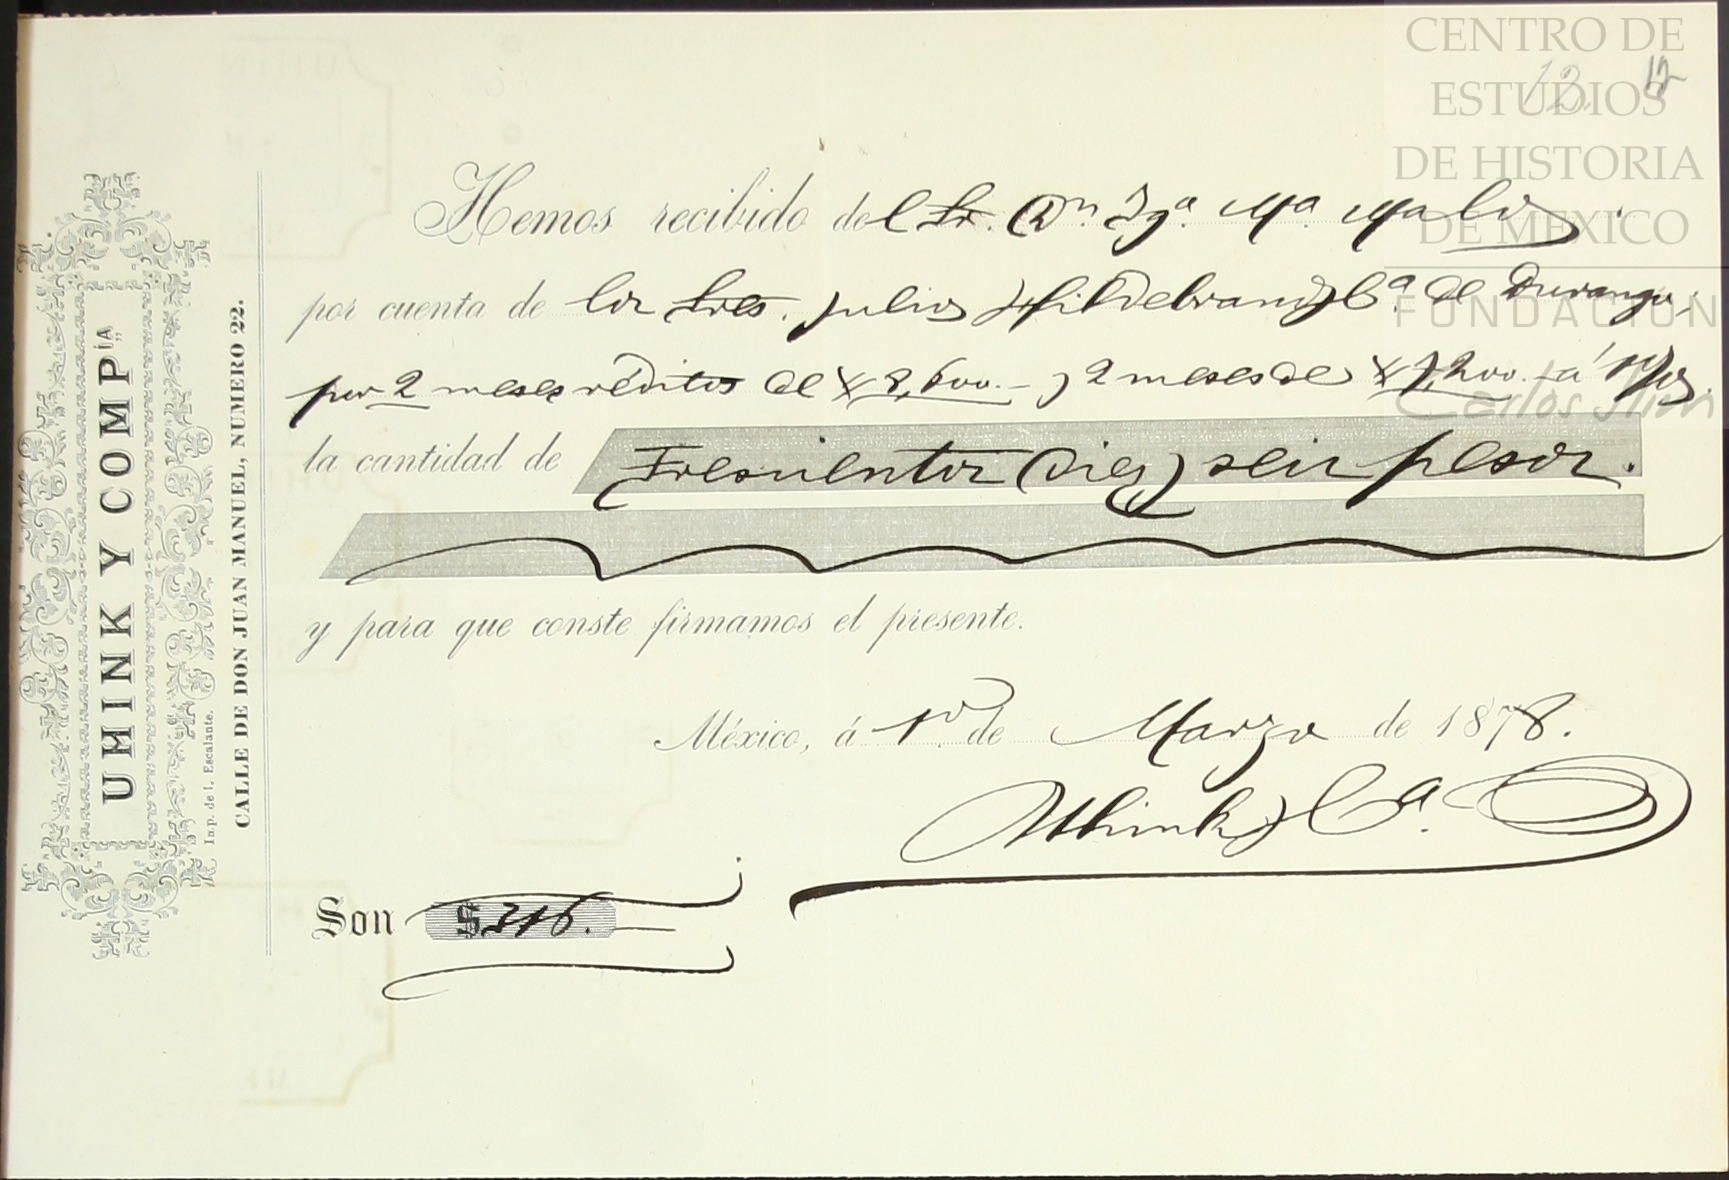 CENTRO DE
ESTUDIOS
DE HISTORIA
DE MÉXICO
FUNDACIÓN
Carlos Slim
12. 12
UHINK Y COMPÍA
Imp. de I. Escalante.
CALLE DE DON JUAN MANUEL, NUMERO 22.
Hemos recibido del Sr. Dn. Igº. Mª.
por cuenta de los Sres. Julio Hildebrand y Cª. de Durango,
por 2 meses réditos de $ 8,600.- y 2 meses de $ 7,200.- á 1%
la cantidad de Trescientos Diez y seis pesos.
y para que conste firmamos el presente.
México, á 1º. de Marzo de 1878.
Uhink y Cª.
Son $316.